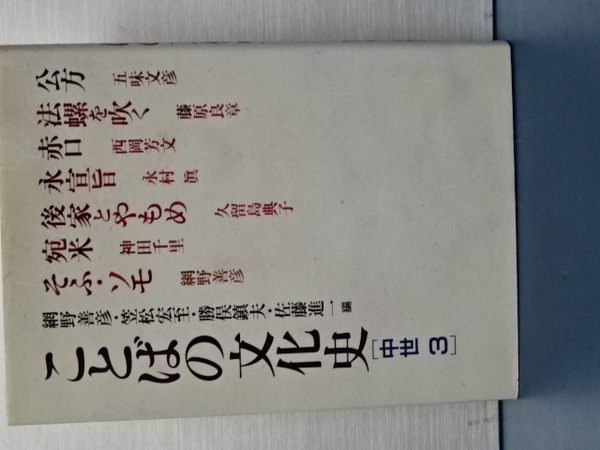 公方 五味文彦
法螺を吹く 藤原良章
赤口 西岡芳文
永宣旨 永村眞
後家とやもめ 久留島典子
宛米 神田千里
そふ・ソモ 網野善彦
網野善彦・笠松宏至・勝俣鎭夫・佐藤進一編
ことばの文化史[中世3]